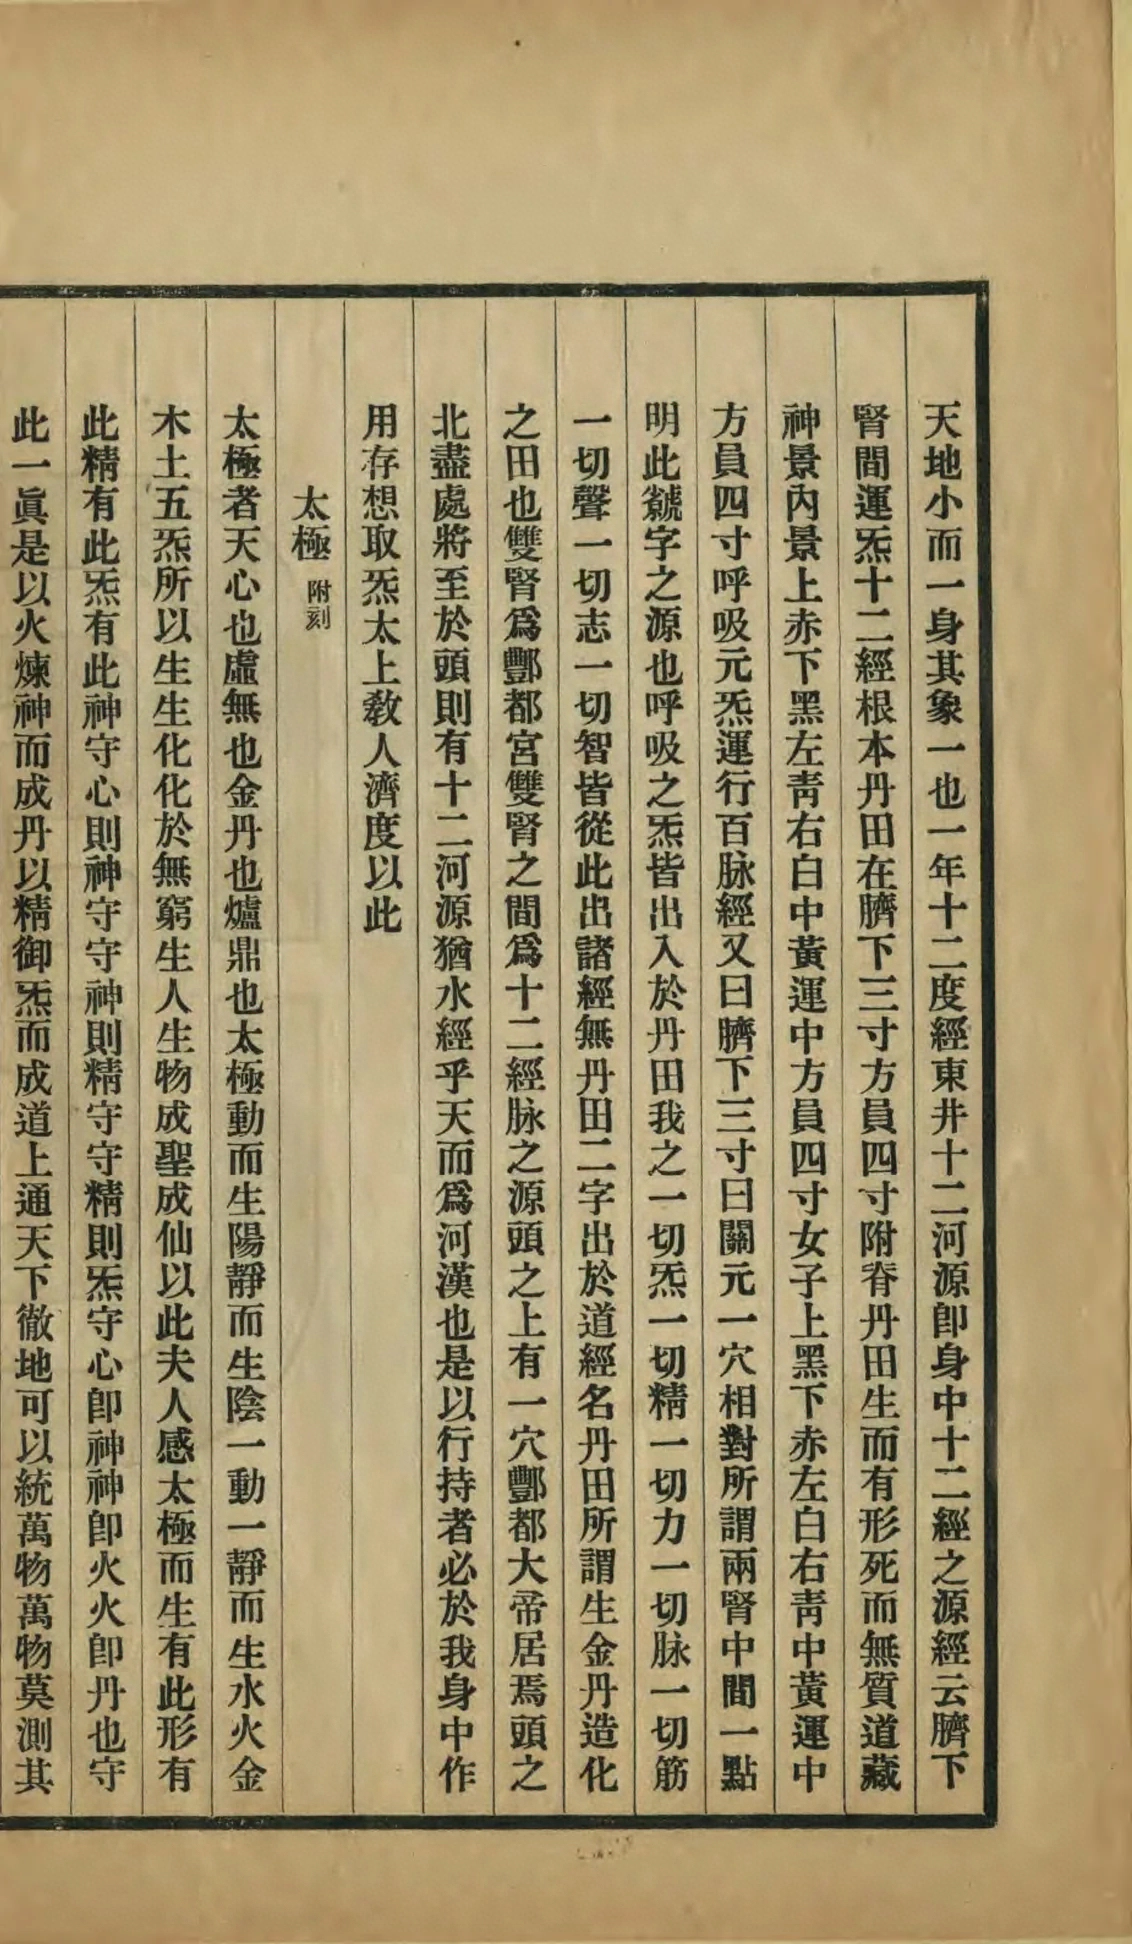 天地小而一身其象一也一年十二度經東井十二河源卽身中十二經之源經云臍下
腎間運炁十二經根本丹田在臍下三寸方員四寸附脊丹田生而有形死而無質道藏
神景內景上赤下黑左靑右白中黃運中方員四寸女子上黑下赤左白右靑中黃運中
方員四寸呼吸元炁運行百脉經又曰臍下三寸曰關元一穴相對所謂兩腎中間一點
明此字之源也呼吸之炁皆出入於丹田我之一切炁一切精一切力一切脉一切筋
一切聲一切志一切智皆從此出諸經無丹田二字出於道經名丹田所謂生金丹造化
之田也雙腎爲酆都宮雙腎之間爲十二經脉之源頭之上有一穴酆都大帝居焉頭之
北盡處將至於頭則有十二河源猶水經乎天而爲河漢也是以行持者必於我身中作
用存想取炁太上敎人濟度以此
太極 附刻
太極者天心也虛無也金丹也爐鼎也太極動而生陽靜而生陰一動一靜而生水火金
木土五炁所以生生化化於無窮生人生物成聖成仙以此夫人感太極而生有此形有
此精有此炁有此神守心則神守守神則精守守精則炁守心卽神神卽火火卽丹也守
此一眞是以火煉神而成丹以精御炁而成道上通天下徹地可以統萬物萬物莫測其